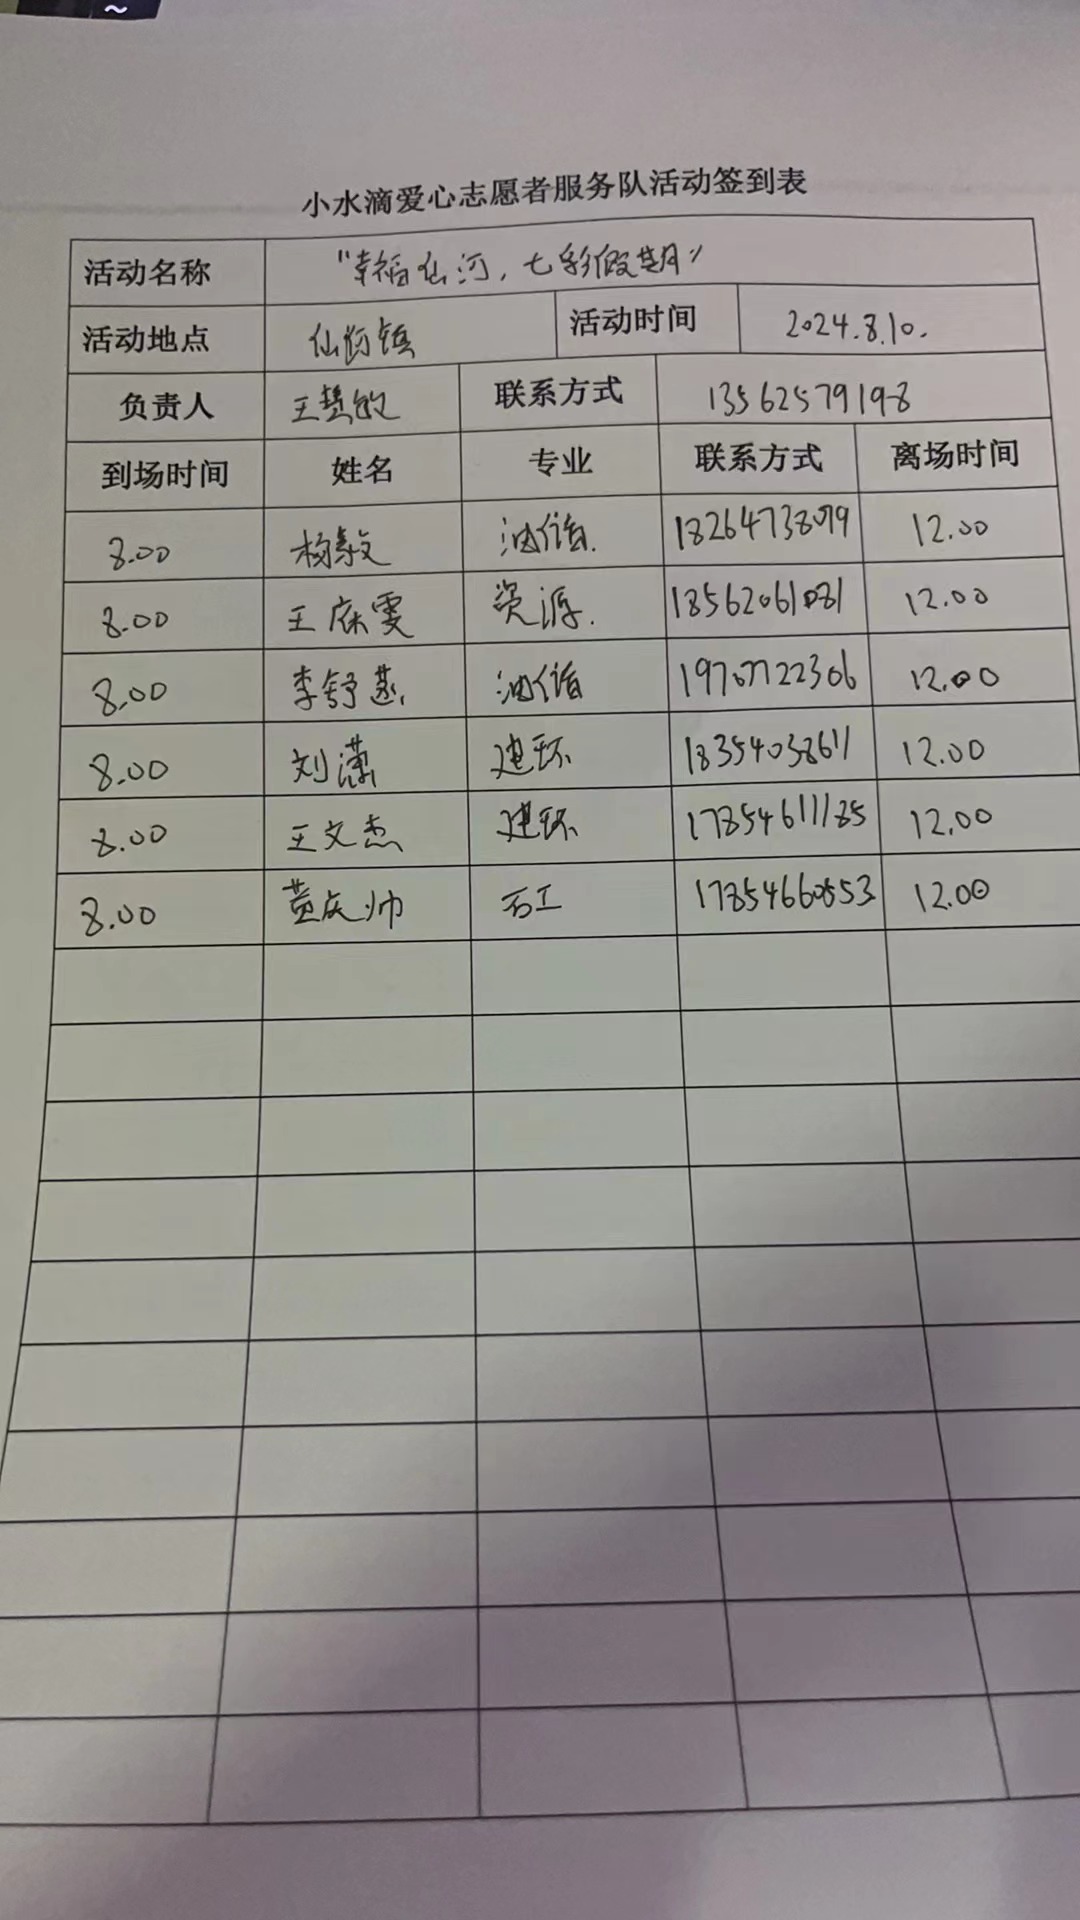 小水滴爱心志愿者服务队活动签到表
活动名称 "幸福仙河，七彩假期"
活动地点 仙河镇 活动时间 2024.8.10.
负责人 王慧敏 联系方式 13562579198
到场时间 姓名 专业 联系方式 离场时间
8.00 杨敏 油储. 18264738079 12.00
8.00 王庥雯 资源. 18562061081 12.00
8.00 李舒燕 油储 19707722306 12.00
8.00 刘潇 建环 18354038611 12.00
8.00 王文杰 建环 17854611185 12.00
8.00 黄庆帅 石工 17854660553 12.00